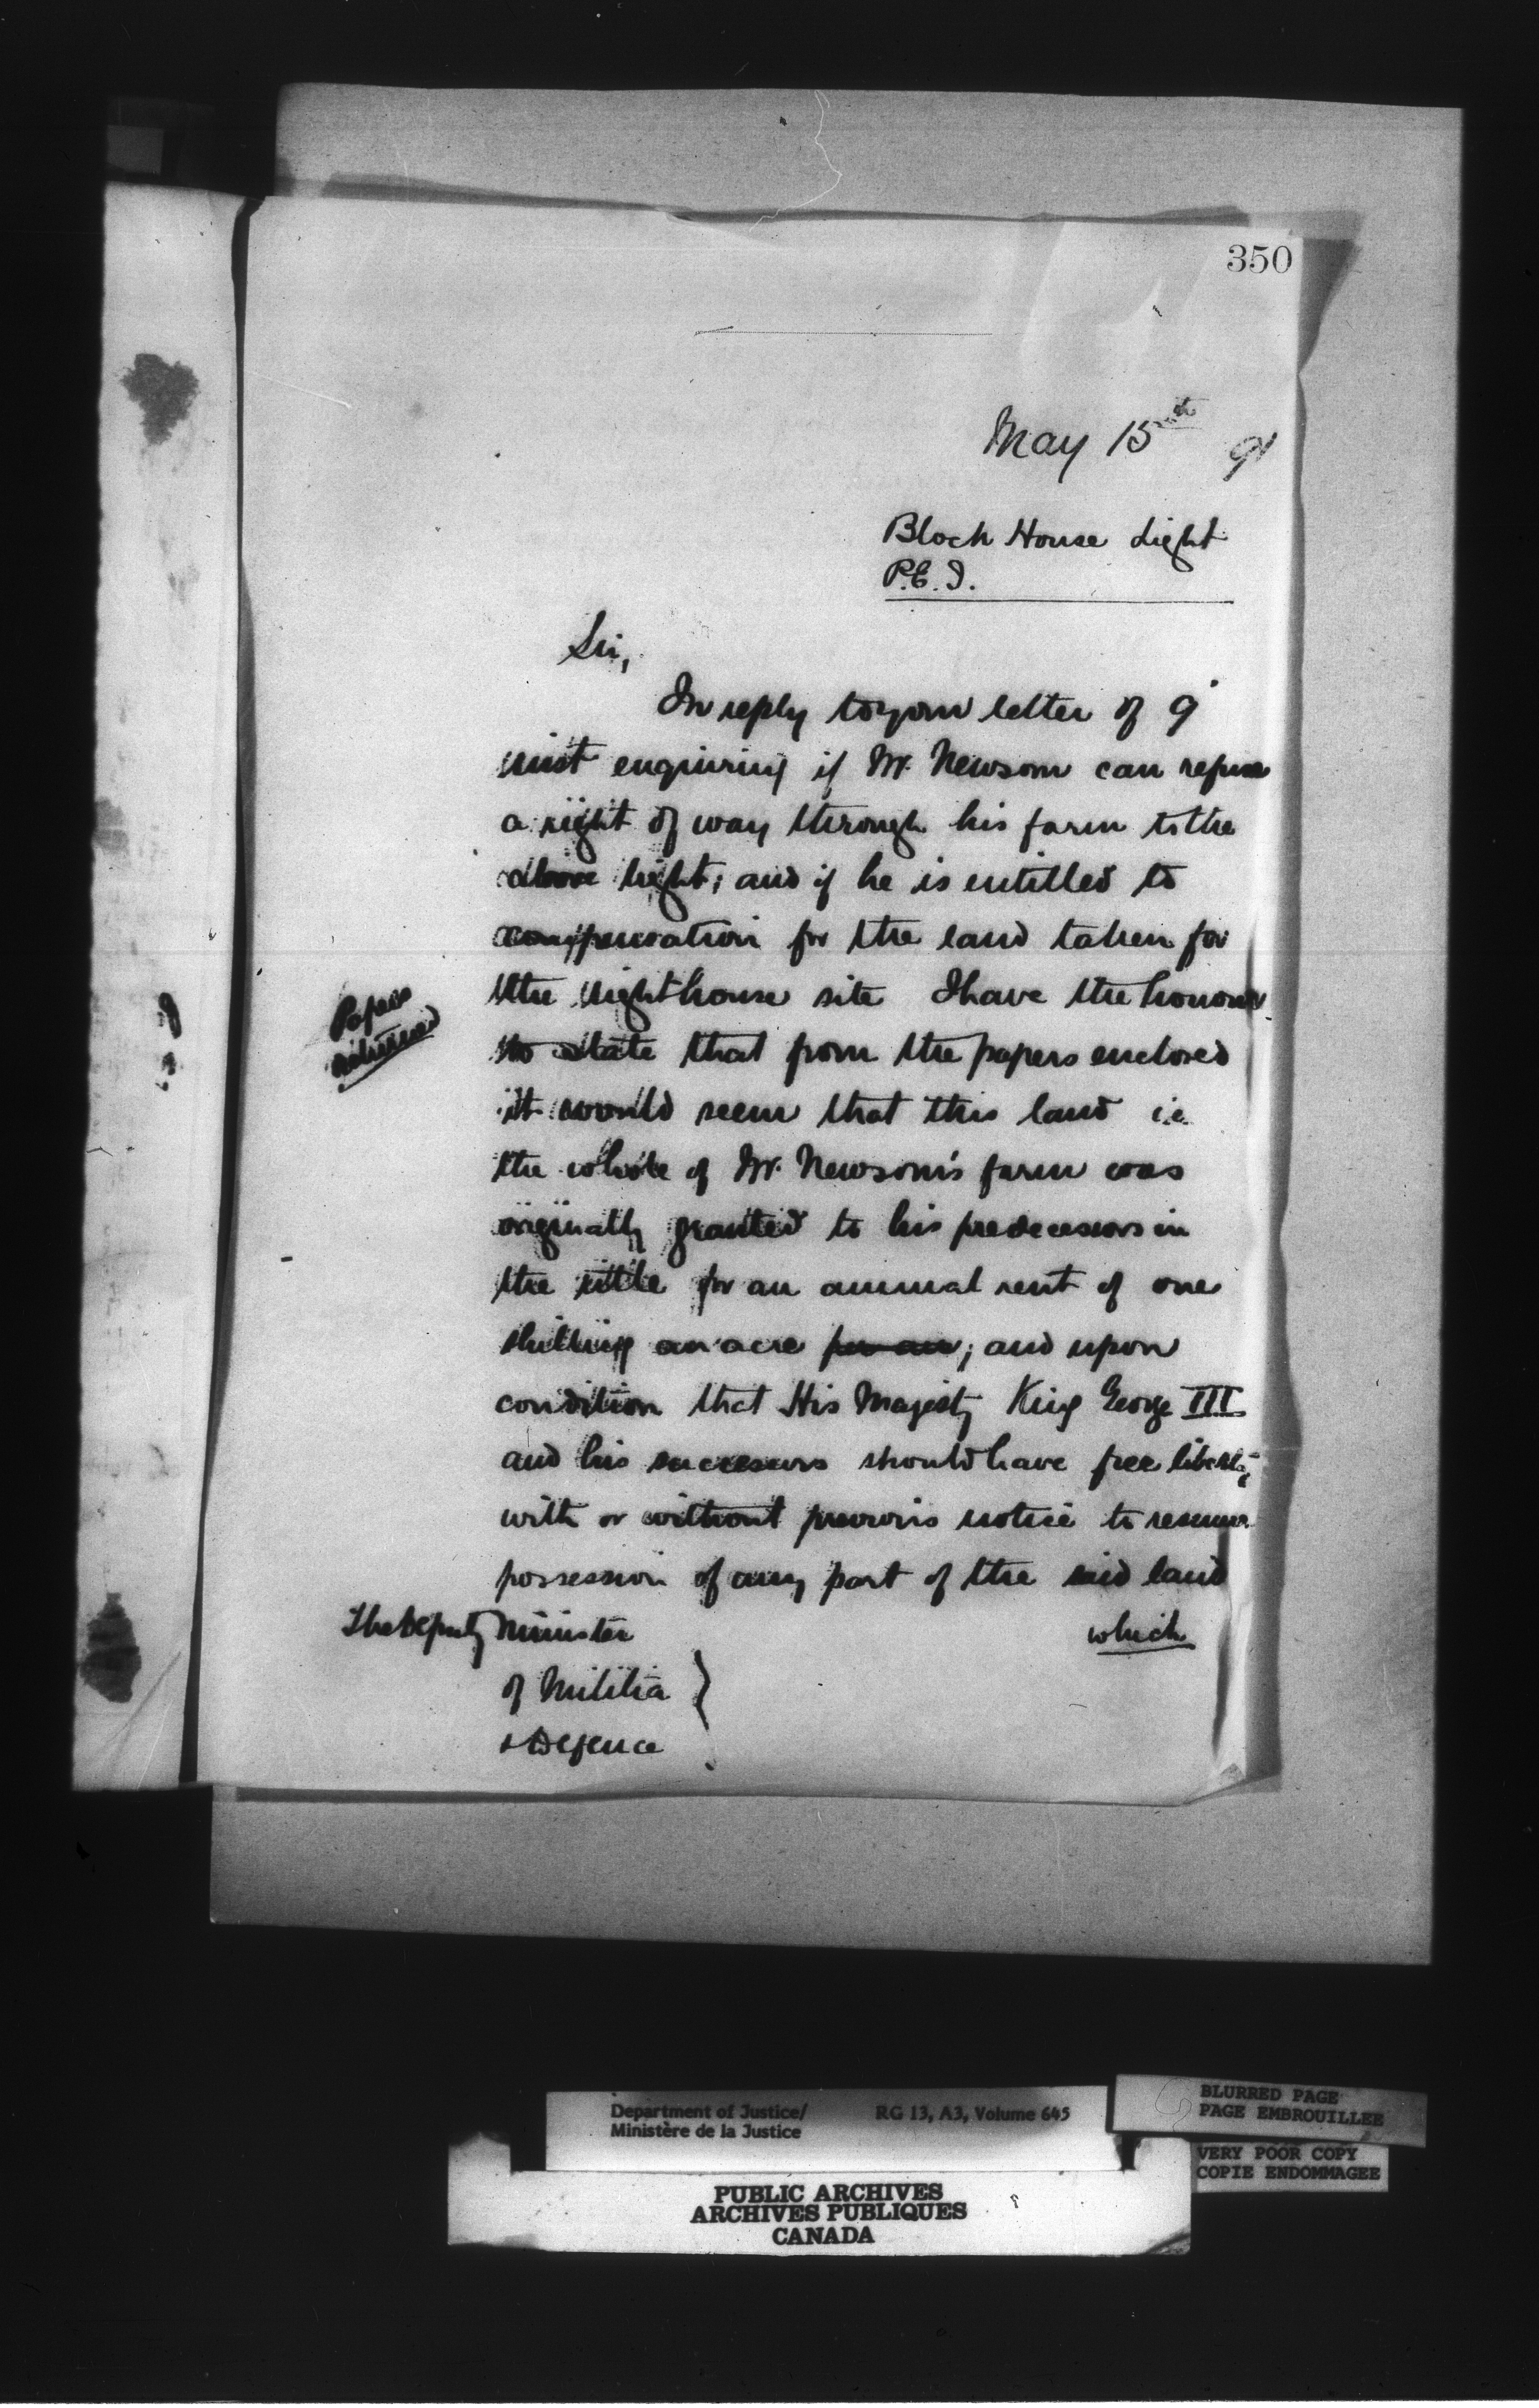 350
May 15th 91
Block House Light
P.E.I.
Sir,
In reply to your letter of 9"
inst enquiring if Mr. Newsom can refuse
a right of way through his farm to the
above light; and if he is entitled to
compensation for the land taken for
the lighthouse site I have the honour
Papers
returned
to state that from the papers enclosed
it would seem that this land i.e.
the whole of Mr. Newsom's farm was
originally granted to his predecessors in
the title for an annual rent of one
shilling an acre per an; and upon
condition that His Majesty King George III
and his successors should have free liberty
with or without previous notice to resume
possession of any part of the said land
which
The Deputy Minister
of Militia
& Defence
Department of Justice/
Ministère de la Justice
RG 13, A3, Volume 645
BLURRED PAGE
PAGE EMBROUILLEE
VERY POOR COPY
COPIE ENDOMMAGEE
PUBLIC ARCHIVES
ARCHIVES PUBLIQUES
CANADA